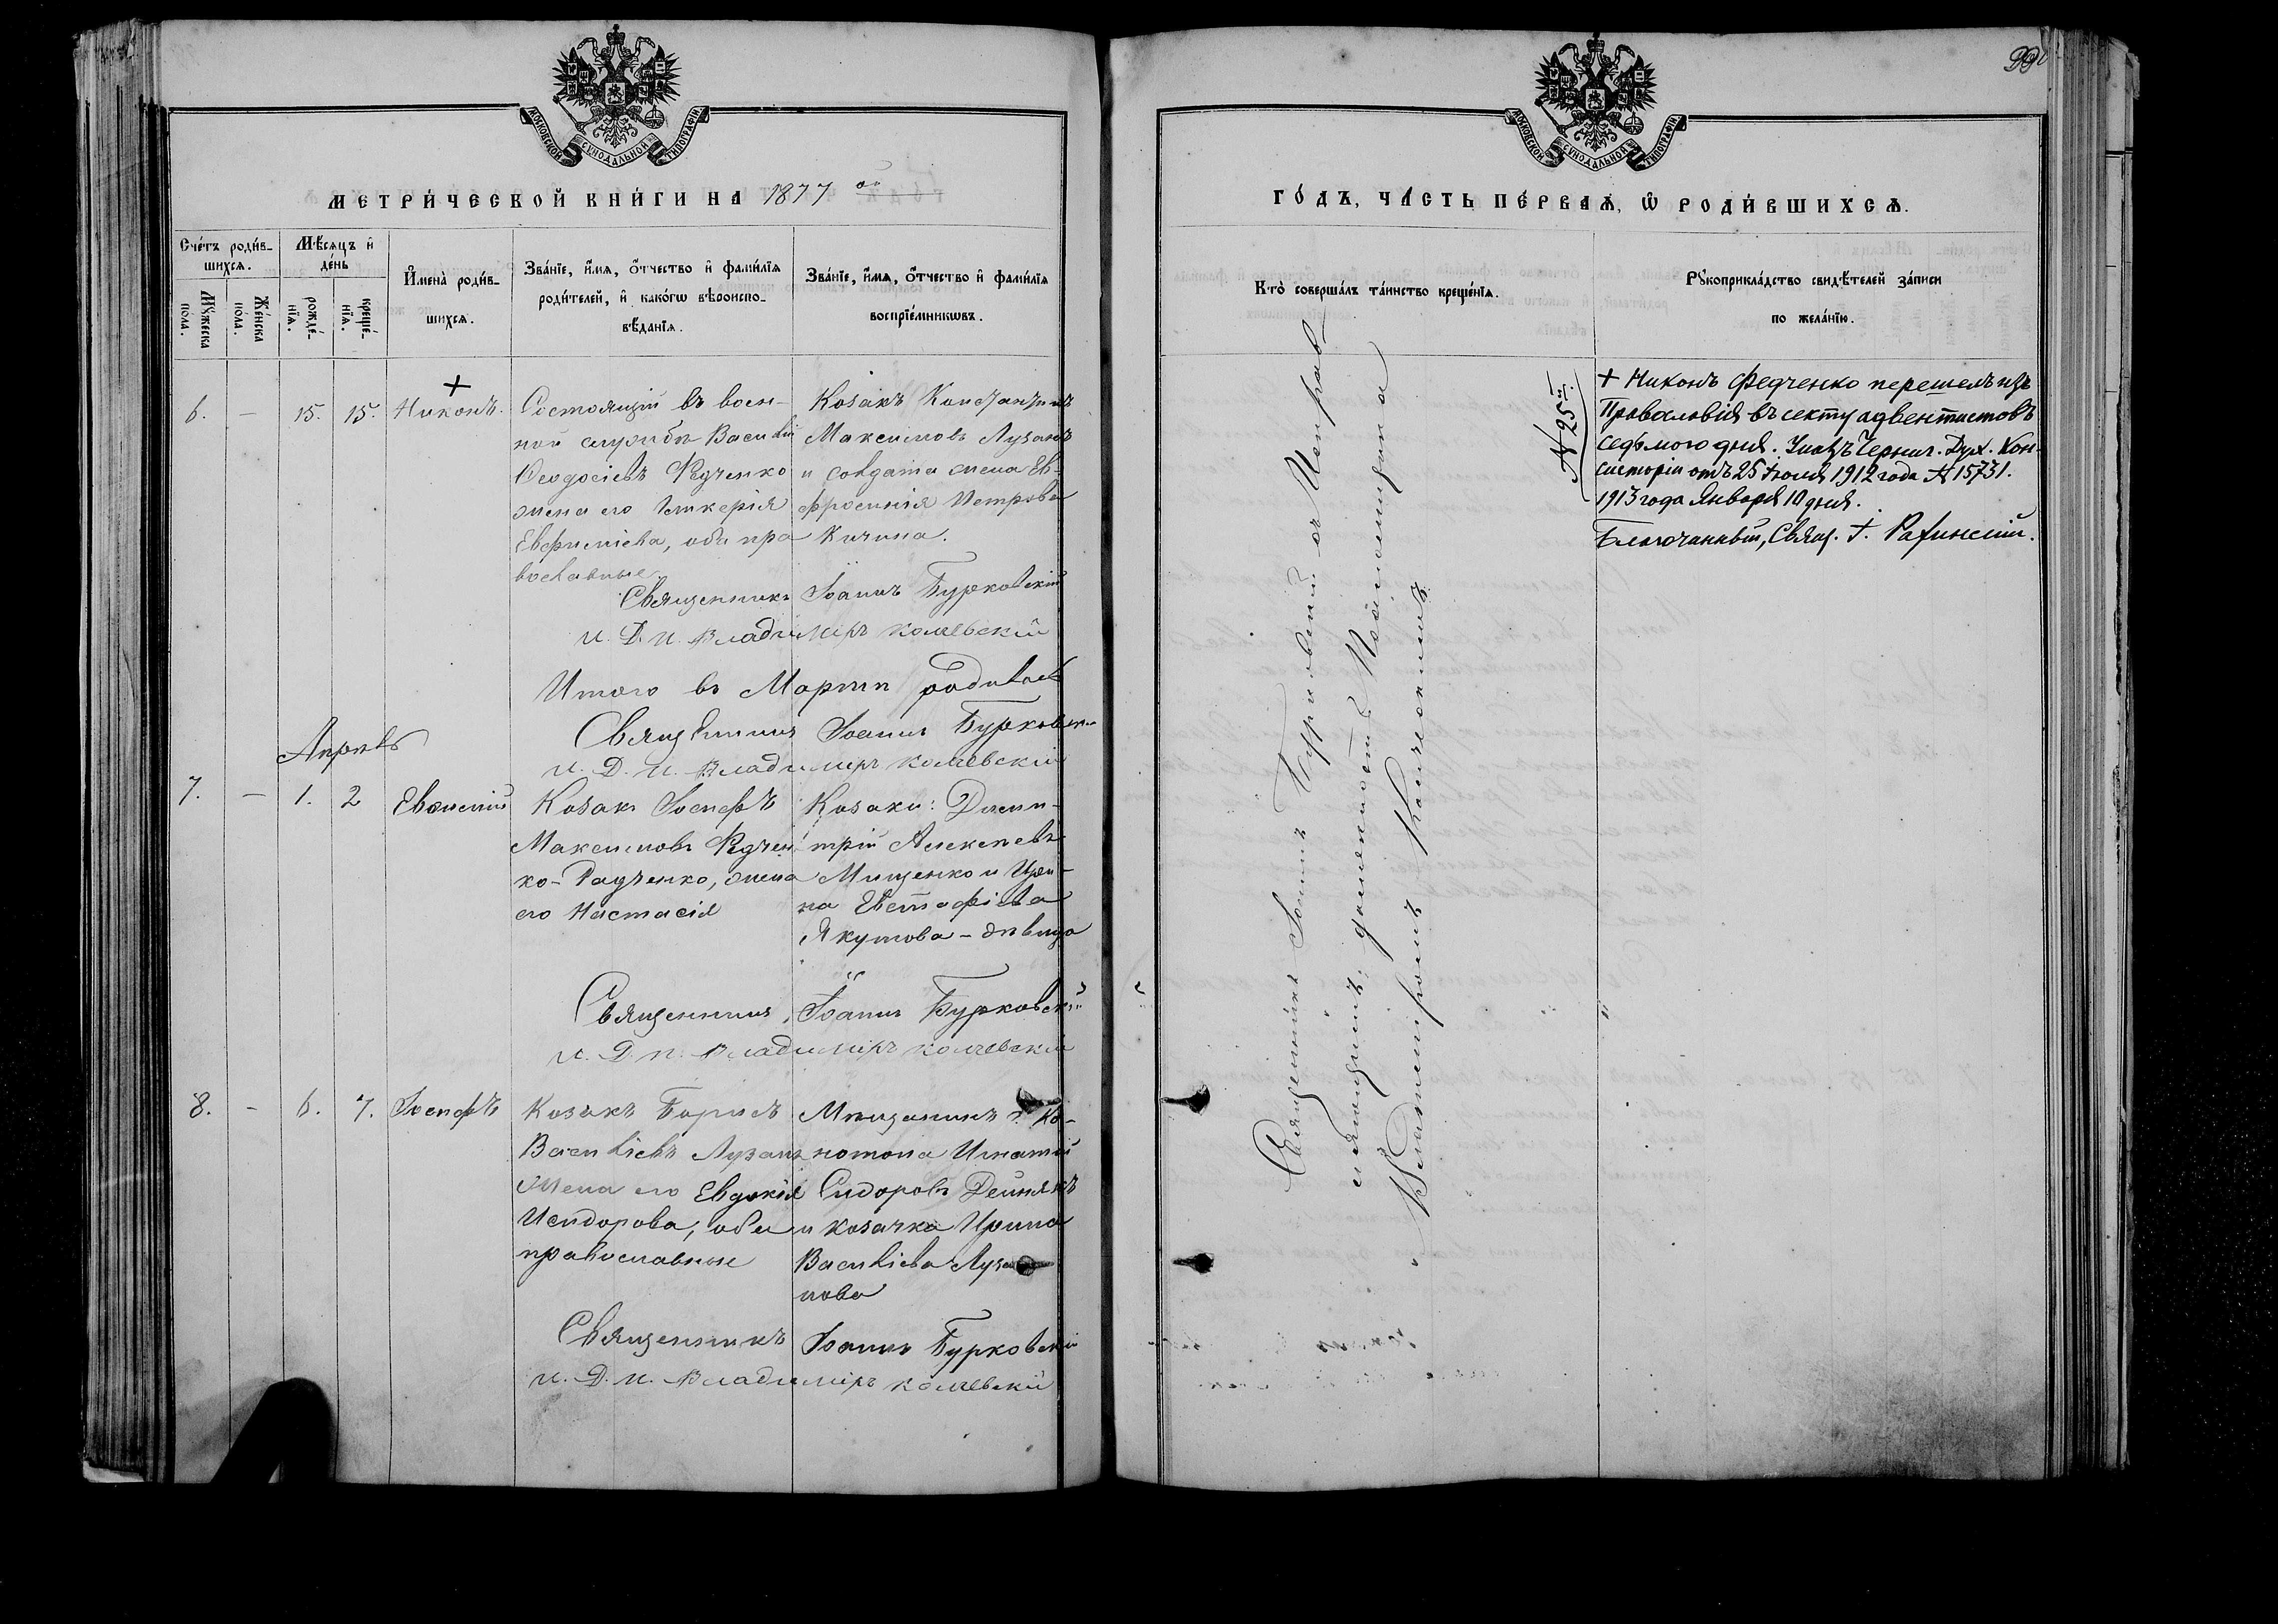 МОСКОВСКОЙ СУНОДАЛЬНОЙ ТИПОГРАФІИ
МЕТРИ́ЧЕСКОЙ КНИ́ГИ НА 1877 ой
Сче́тъ роди́в-
шихсѧ.
Мѣ́сѧцъ и҆
де́нь
Мꙋ́жеска по́ла.
Же́нска по́ла.
рожде́-
нїѧ.
креще́-
нїѧ.
И҆мена̀ роди́в-
шихсѧ.
Зва́нїе, и҆́мѧ, ѻ҆́тчество и҆ фамѝлїѧ
роди́телей, и҆ како́гѡ вѣроиспо-
вѣ́данїѧ.
Зва́нїе, и҆́мѧ, ѻ҆́тчество и҆ фамѝлїѧ
воспрїе́мникѡвъ.
6. — 15. 15. Никонъ.
Состоящій въ воен-
ной службѣ Василій
Ѳеодосіевъ Федченко
жена его Гликерія
Евфиміева, оба пра
вославные
Козакъ Константинъ
Максимовъ Лузанъ
и солдата жена Ев-
фросинія Петрова
Кичина.
Священникъ Іоаннъ Бурковскій
и. д. п. Владиміръ
Итого въ Мартѣ родилось
Священникъ Іоаннъ Бурковскій
и. д. п. Владиміръ
Апрѣль
7. — 1. 2 Евпсихій
Козакъ Іосифъ
Максимовъ Федчен
ко-Радченко, жена
его Настасія
Козаки: Дими-
трій Алексѣевъ
Мищенко и Ири-
на Евстафіева
Якутова - дѣвица
Священникъ Іоаннъ Бурковскій
и. д. п. Владиміръ
8. — 6. 7. Іосифъ
Козакъ Борисъ
Василіевъ Лузанъ
жена его Евдокія
Исидорова, оба
православные
Мѣщанинъ г. Ко-
нотопа Игнатій
Сидоровъ Дейнякъ
и козачка Ирина
Василіева Луза
нова
Священникъ Іоаннъ Бурковскій
и. д. п. Владиміръ
МОСКОВСКОЙ СУНОДАЛЬНОЙ ТИПОГРАФІИ
ГО́ДЪ, ЧА́СТЬ ПЕ́РВАѦ, Ѡ҆ РОДИ́ВШИХСѦ.
Кто̀ соверша́лъ та́инство креще́нїѧ.
Рꙋкоприкла́дство свидѣ́телей за́писи
по жела́нїю.
Священникъ Іоаннъ Бурковскій съ Исправ
ляющимъ должность Псаломщика
Владиміромъ
№ 25
+ Никонъ Федченко перешелъ изъ
Православія въ секту адвентистовъ
седьмого дня. Указъ Черниг. Дух. Кон-
систоріи отъ 25 Іюля 1912 года № 15731.
1913 года Января 10 дня.
Благочинный, Свящ.